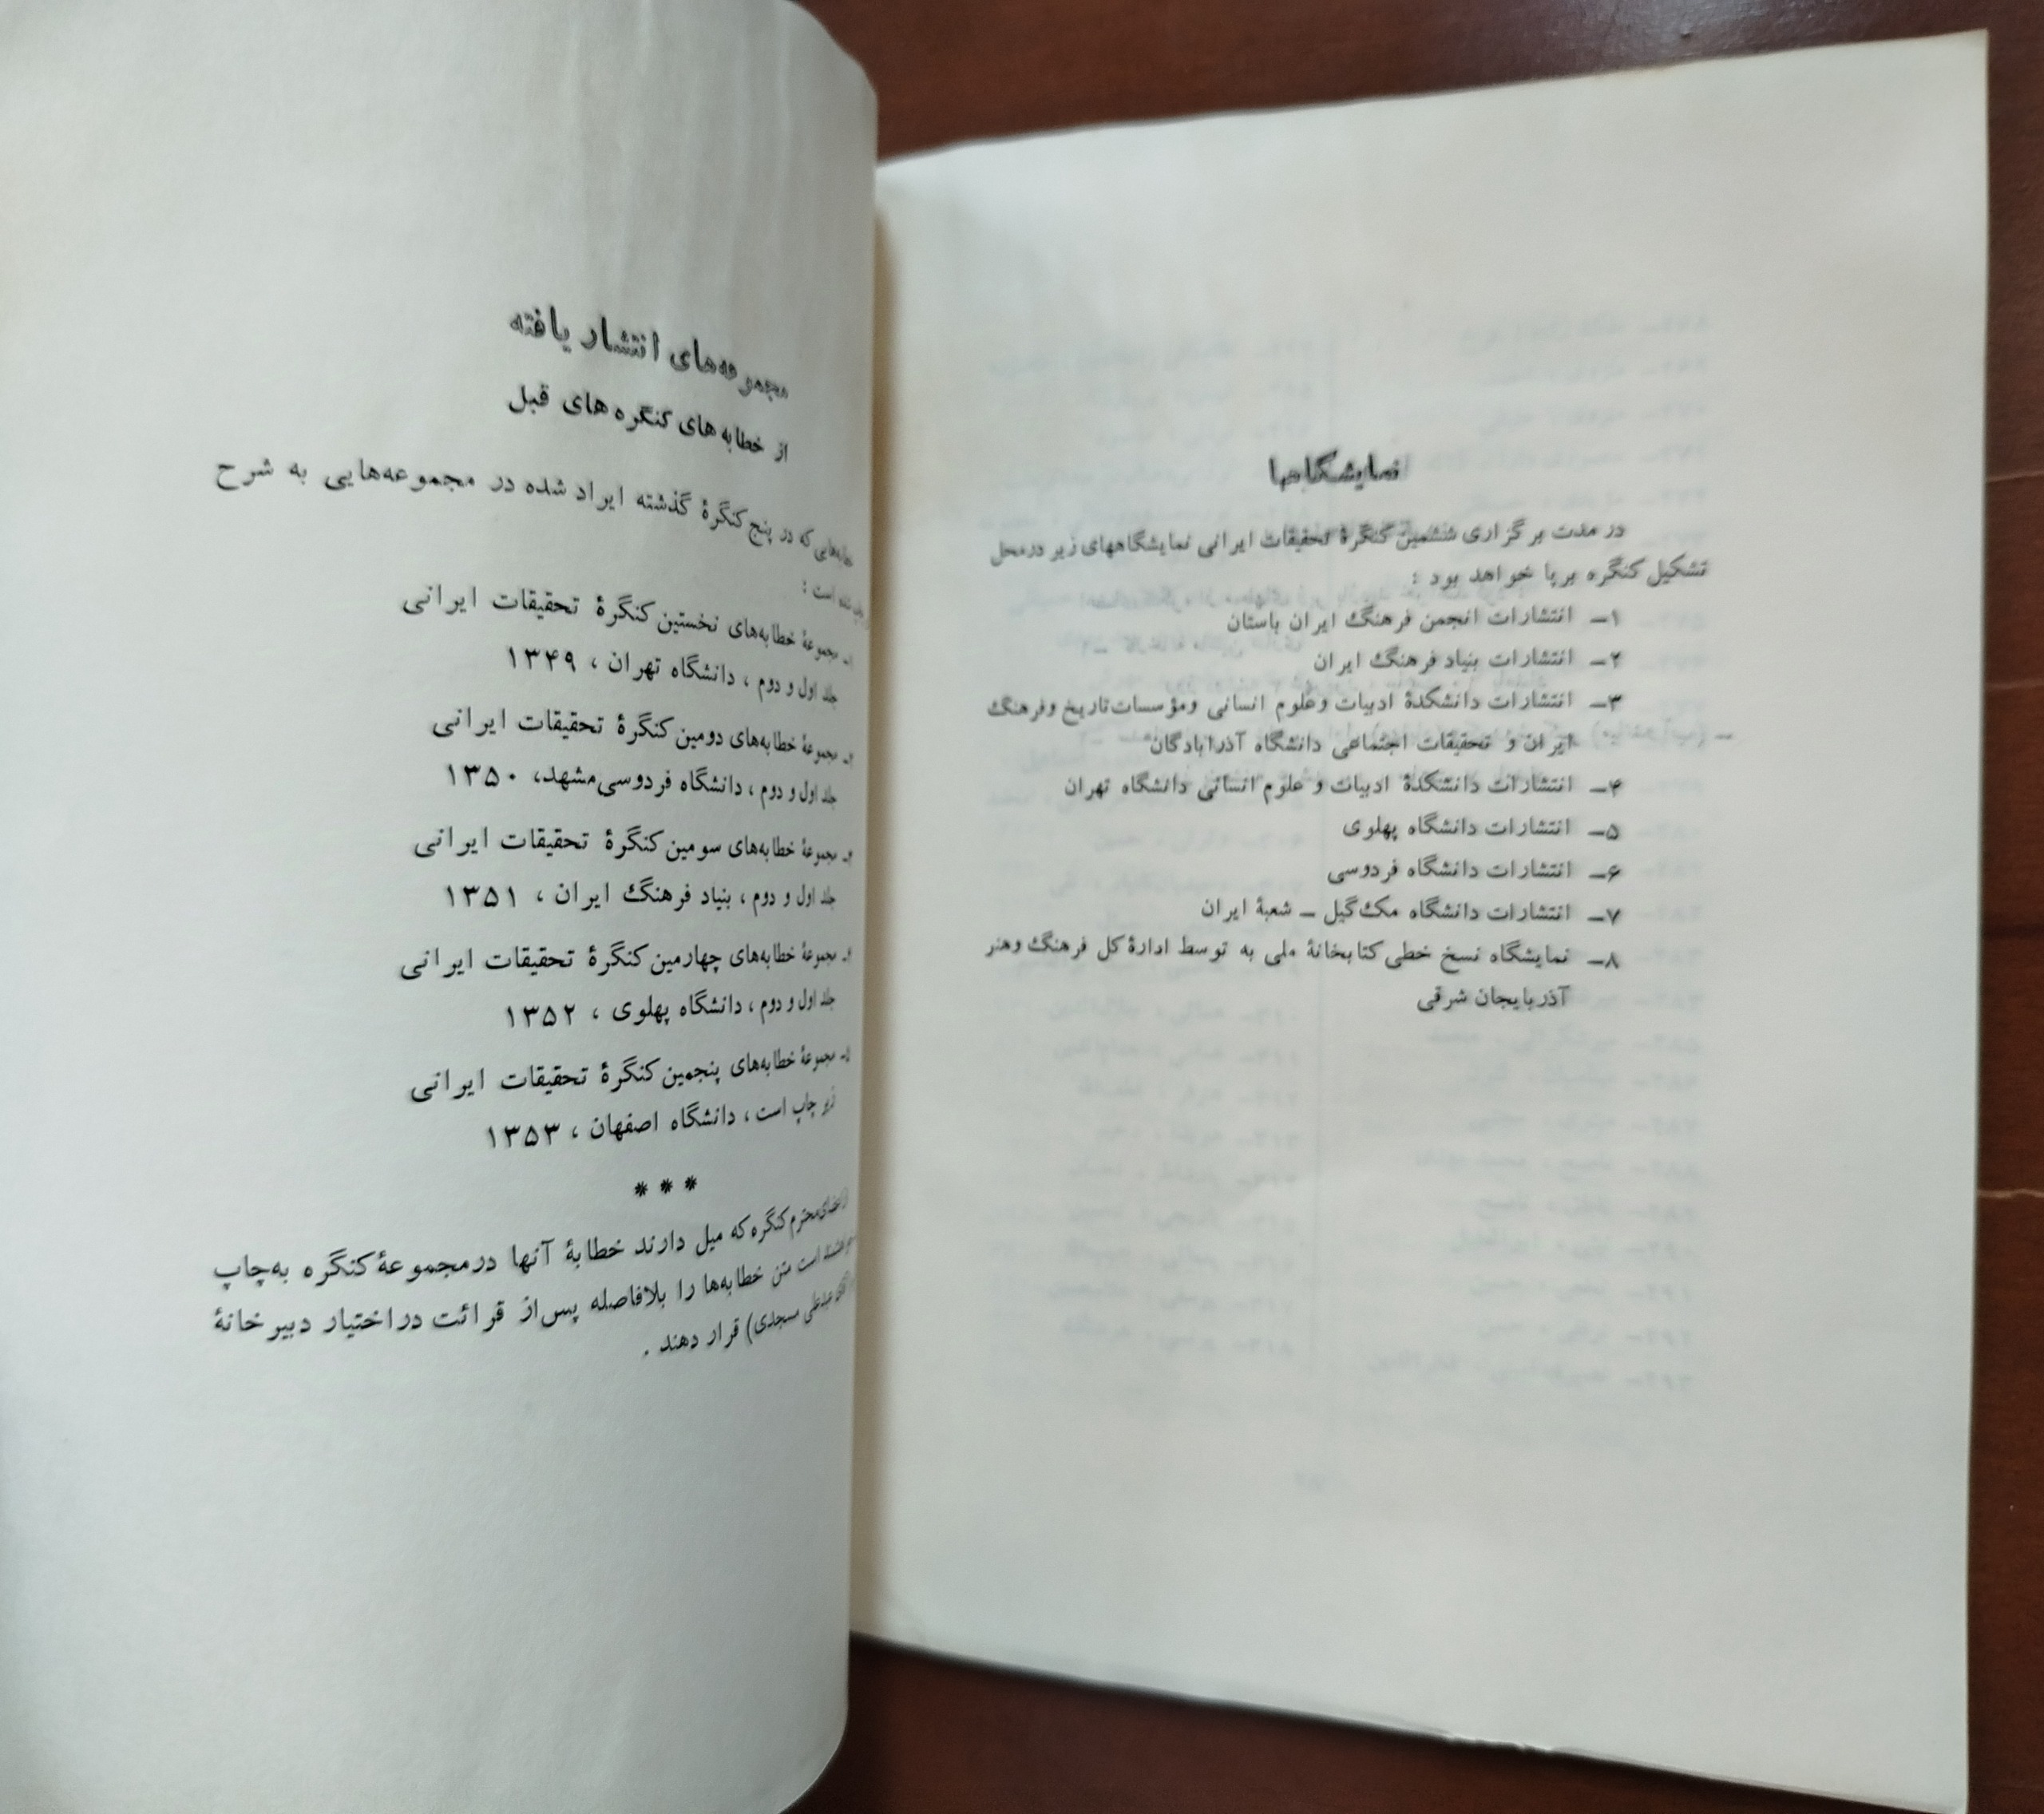 نمایشگاهها
در مدت برگزاری ششمین کنگرهٔ تحقیقات ایرانی نمایشگاههای زیر درمحل
تشکیل کنگره برپا خواهد بود :
۱ــ انتشارات انجمن فرهنگ ایران باستان
۲ــ انتشارات بنیاد فرهنگ ایران
۳ــ انتشارات دانشکدهٔ ادبیات وعلوم انسانی ومؤسسات تاریخ وفرهنگ
ایران و تحقیقات اجتماعی دانشگاه آذرابادگان
۴ــ انتشارات دانشکدهٔ ادبیات و علوم انسانی دانشگاه تهران
۵ــ انتشارات دانشگاه پهلوی
۶ــ انتشارات دانشگاه فردوسی
۷ــ انتشارات دانشگاه مک‌گیل ــ شعبهٔ ایران
۸ــ نمایشگاه نسخ خطی کتابخانهٔ ملی به توسط ادارهٔ کل فرهنگ وهنر
آذربایجان شرقی
مجموعه‌های انتشار یافته
از خطابه های کنگره های قبل
که در پنج کنگرهٔ گذشته ایراد شده در مجموعه‌هایی به شرح
است :
مجموعهٔ خطابه‌های نخستین کنگرهٔ تحقیقات ایرانی
جلد اول و دوم ، دانشگاه تهران ، ۱۳۴۹
مجموعهٔ خطابه‌های دومین کنگرهٔ تحقیقات ایرانی
جلد اول و دوم ، دانشگاه فردوسی مشهد، ۱۳۵۰
مجموعهٔ خطابه‌های سومین کنگرهٔ تحقیقات ایرانی
جلد اول و دوم ، بنیاد فرهنگ ایران ، ۱۳۵۱
مجموعهٔ خطابه‌های چهارمین کنگرهٔ تحقیقات ایرانی
جلد اول و دوم ، دانشگاه پهلوی ، ۱۳۵۲
۵ــ مجموعهٔ خطابه‌های پنجمین کنگرهٔ تحقیقات ایرانی
زیر چاپ است ، دانشگاه اصفهان ، ۱۳۵۳
* * *
محترم کنگره که میل دارند خطابهٔ آنها درمجموعهٔ کنگره به‌چاپ
است متن خطابه‌ها را بلافاصله پس‌از قرائت دراختیار دبیرخانهٔ
عبدعلی مسجدی) قرار دهند .